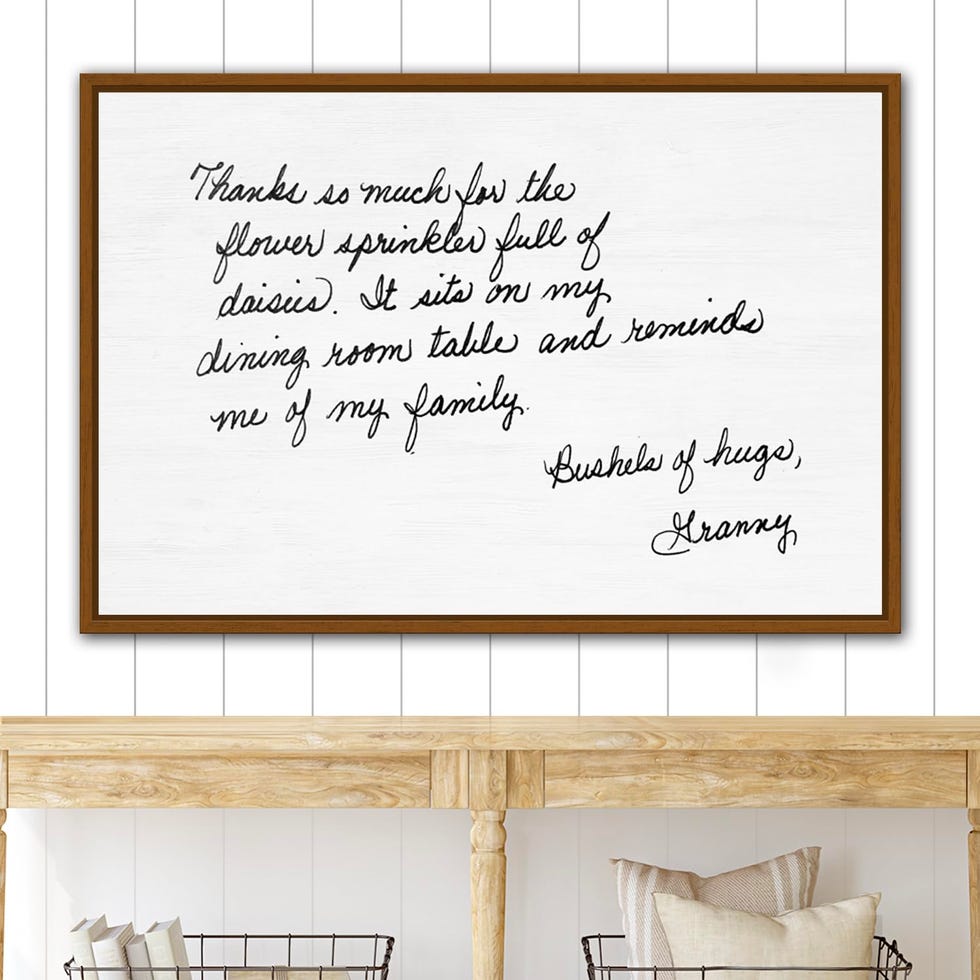 Thanks so much for the
flower sprinkler full of
daisies. It sits on my
dining room table and reminds
me of my family.
Bushels of hugs,
Granny